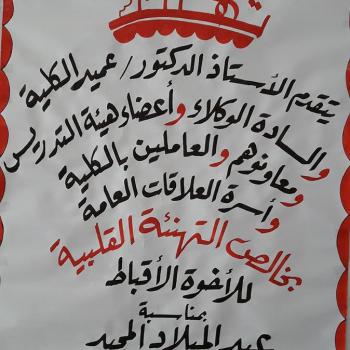 تهنئة
يتقدم الأستاذ الدكتور / عميد الكلية
والسادة الوكلاء وأعضاء هيئة التدريس
ومعاونوهم والعاملين بالكلية
وأسرة العلاقات العامة
بخالص التهنئة القلبية
للأخوة الأقباط
بمناسبة
عيد الميلاد المجيد